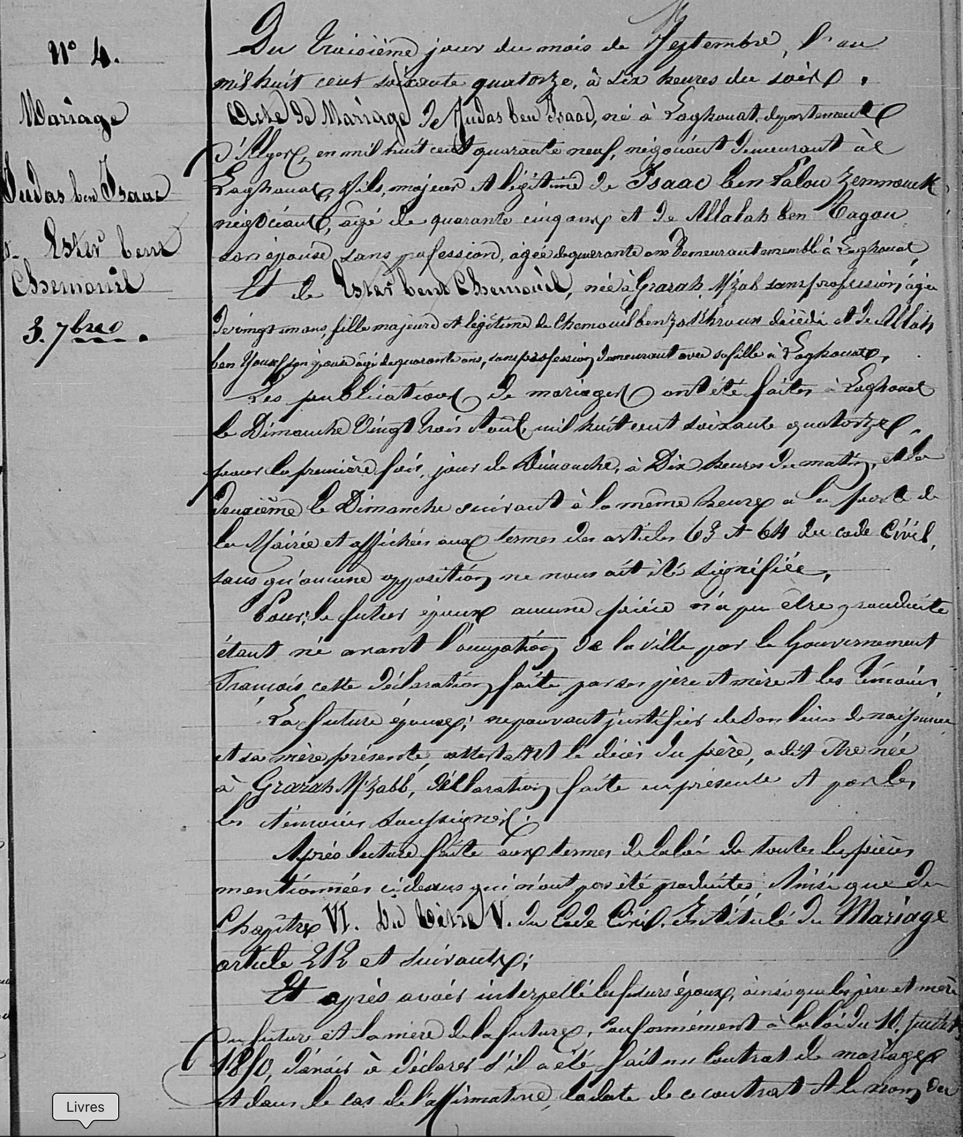 N° 4.
Mariage
Judas ben Isaac
Ester bent
Chemouïl
3. 7bre
Du troisième jour du mois de Septembre, l'an
mil huit cent soixante quatorze, à six heures du soir.
Acte de Mariage de Judas ben Isaac, né à Laghouat, département
d'Alger, en mil huit cent quarante neuf, négociant demeurant à
Laghouat, fils, majeur et légitime de Isaac ben
négociant, âgé de quarante cinq ans et de Allalah ben
son épouse, sans profession, âgée de quarante ans demeurant ensemble à Laghouat,
Et de Ester bent Chemouïl, née à Mzab sans profession, âgée
de vingt un ans, fille majeure et légitime de Chemouil ben décédé et de
ben son épouse âgée de quarante ans, sans profession demeurant avec sa fille à Laghouat.
Les publications de mariage ont été faites à Laghouat
le Dimanche Vingt trois Août mil huit cent soixante quatorze
pour la première fois, jour de Dimanche, à Dix heures du matin, et la
deuxième le Dimanche suivant à la même heure à la porte de
la Mairie et affichées aux termes des articles 63 et 64 du code Civil,
sans qu'aucune opposition ne nous ait été signifiée,
Pour le futur époux aucune pièce n'a pu être produite
étant né avant l'occupation de la ville par le Gouvernement
Français cette déclaration faite par ses père et mère et les témoins
La future épouse, ne pouvant justifier de son lieu de naissance
et sa mère présente, attestant le décès du père, a dit être née
à Mzabb, déclaration faite en présence et par les
les témoins soussignés.
Après lecture faite aux termes de la loi de toutes les pièces
mentionnées ci dessus qui n'ont pas été produites, Ainsi que du
Chapître VI. Du titre V. du Code Civil, intitulé du Mariage
article 212 et suivants;
Et après avoir interpellé les futurs époux, ainsi que les père et mère
du futur et la mère de la future, conformément à la loi du Juillet
1850, d'avoir à déclarer s'il a été fait un contrat de mariage
et dans le cas de l'affirmative, la date de ce contrat et le nom du
Livres